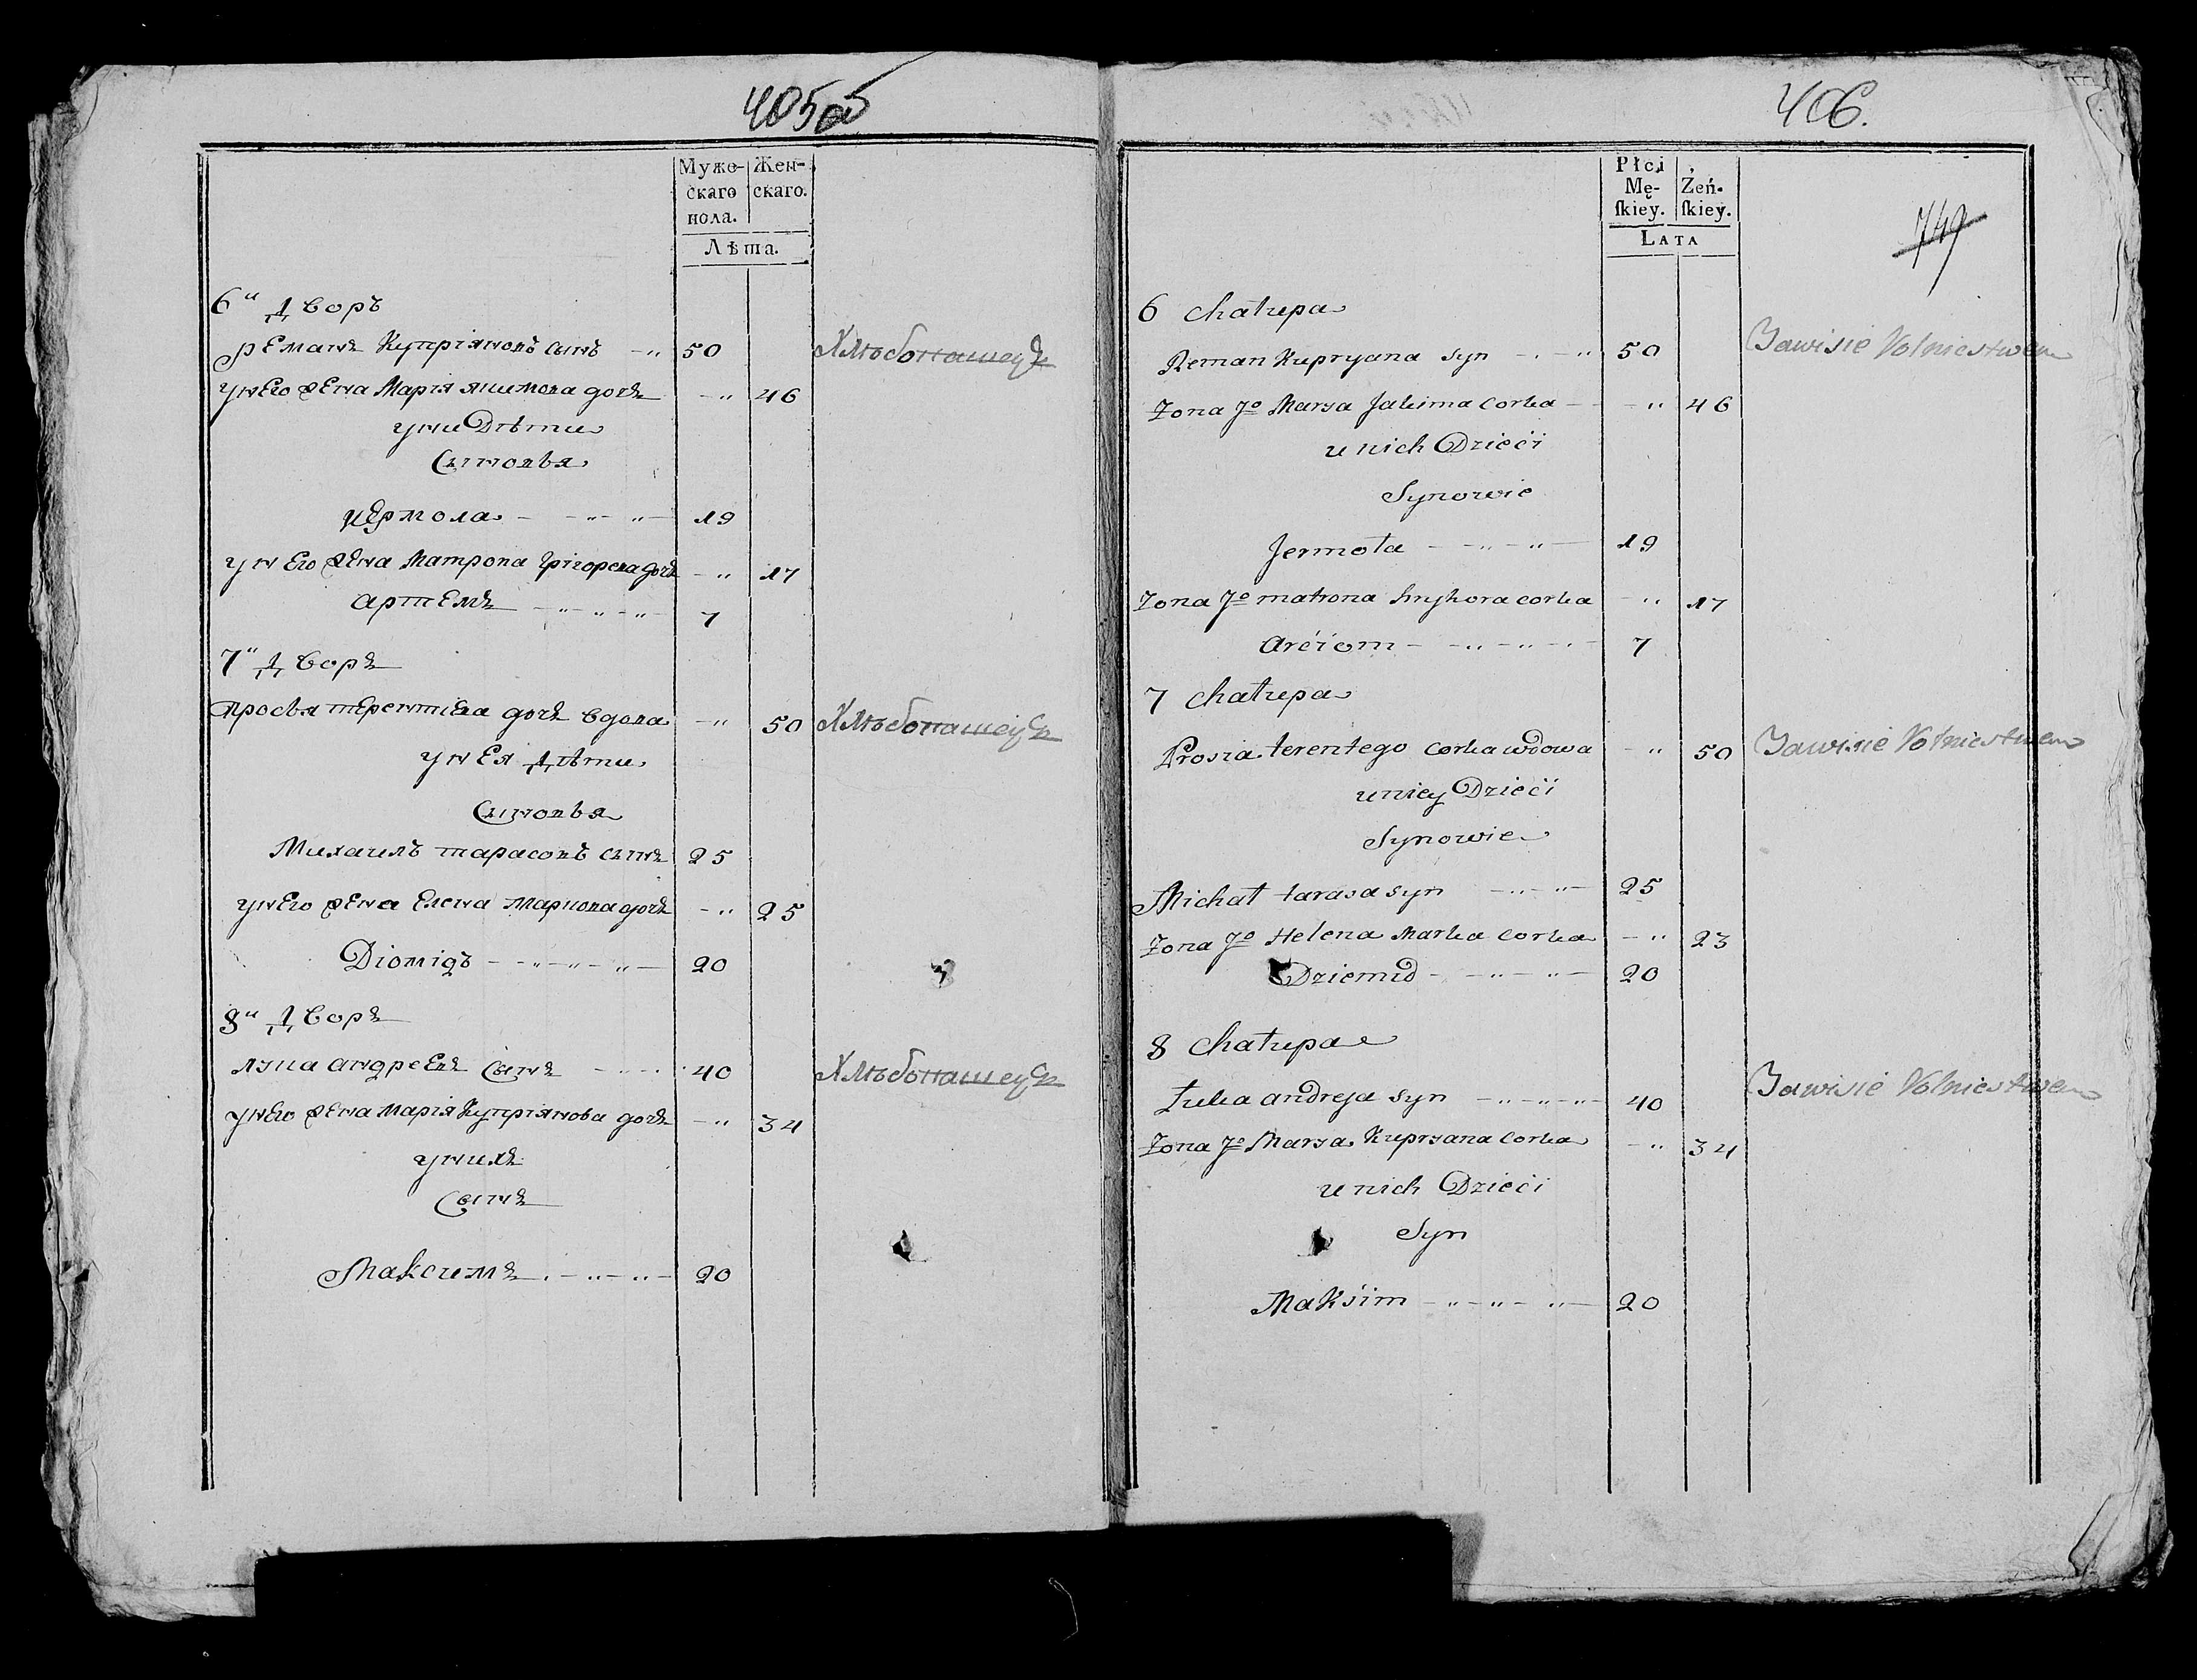 405об
Муже-
скаго
пола.
Жен-
скаго.
Лѣта.
6й Дворъ
Реманъ Купріяновъ сынъ 50 Хлѣбопашецъ
у него жена Марія Якимова дочь 46
у ни Дѣти
Сыновья
Иермола 19
у него жена Матрона Григорева дочь 17
Артемъ 7
7й Дворъ
Прося терентіева дочь вдова 50 Хлѣбопашецъ
у нея Дѣти
Сыновья
Михаилъ тарасовъ сынъ 25
у него жена Елена Маркова дочь 25
Діомидъ 20
8й Дворъ
Лука андреевъ Сынъ 40 Хлѣбопашецъ
у него жена Марія Купріянова дочь 34
у нихъ
Сынъ
Максимъ 20
406.
Płci
Mę-
ſkiey.
Żeń-
ſkiey.
LATA
749
6 Chałupa
Reman Kupryana syn 50 Bawisie Rolniestwem
Żona Jo Marya Jakima Corka 46
u nich Dzieci
Synowie
Jermoła 19
Żona Jo matrona hryhora corka 17
Arciom 7
7 Chałupa
Prosia terentego corka wdowa 50 Bawisie Rolniestwem
u niey Dzieci
Synowie
Michał tarasa syn 25
Żona Jo Helena Marka corka 23
Dziemid 20
8 Chałupa
Łuka andreja syn 40 Bawisie Rolniestwem
Żona Jo Marya Kupryana corka 34
u nich Dzieci
Syn
Maksim 20